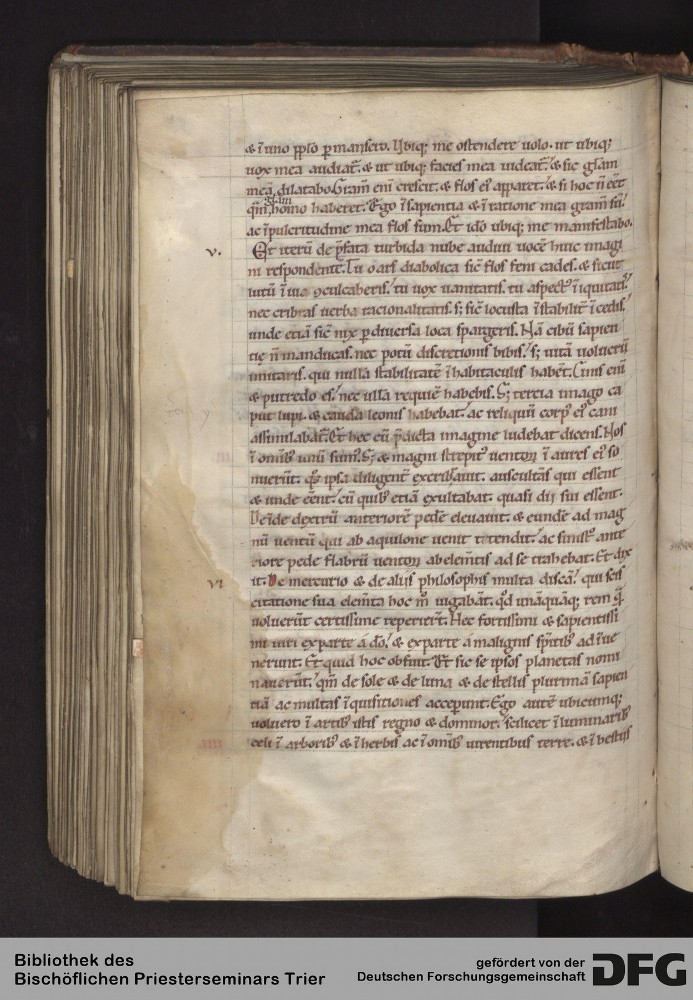 & ī uno p̱p̱lo p̱mansero. Vbiq; me ostendere uolo. ut ubiq;
uox mea audiat̄. & ut ubiq; facies mea uideat̄. & sic gl̄am
meā dilatabo. Gram̄ enī crescit. & flos eiꝰ apparet. & si hoc n̄ eēt
gl̄am
qm̄ homo haberet. Ego ī sapientia & ī ratione mea gram̄ sū.
ac ī pulcritudine mea flos sum. Et idō ubiq; me manifestabo.
v.
Et iterū de p̄fata turbida nube audiui uocē huic imagi
ni respondentē. Tu o ars diabolica sic̄ flos feni cades. & sicut
lutū ī uia ꝯculcaberis. tu uox uanitatis. tu aspectꝰ īiquitatis.
nec cribras uerba racionalitatis. s; sic̄ locusta īstabilit̄ īcedis.
unde etiā sic̄ nix p̱ diuersa loca spargeris. Nā cibū sapien
tię n̄ manducas. nec potū discretionis bibis. s; uitā uolucrū
imitaris. qui nullā stabilitatē ī habitaculis habēt. Cinis enī
& putredo es. nec ullā requiē habebis. S; tercia imago ca
put lupi. & cauda leonis habebat. ac reliquū corpꝰ eiꝰ cani
assimilabat̄. Et hec cū p̄dicta imagine ludebat dicens. Nos
ī omībꝰ unū sumꝰ. S; & magni strepitꝰ uentoꝝ ī aures eiꝰ so
nuerūt. q̄s ipsa diligent̄ auscultās qui essent
& unde eēnt. cū quibꝰ etiā exultabat. quasi dii sui essent.
Deīde dextrū anteriorē pedē eleuauit. & eundē ad mag
nū uentū qui ab aquilone uenit tetendit. ac sinistꝰ ante
riore pede flabrū uentoꝝ ab elemētis ad se trahebat. Et dix
VI
it. De mercurio & de aliis philosophis multa discā. qui seis
citatione sua elem̄ta hoc m̊ iugabāt. qd̄ unāquāq; rem q̄
uoluerūt certissime reperiert̄. Hec fortissimi & sapientissi
mi uiri ex parte a dō. & ex parte a malignis sp̄itibꝰ adīue
nerunt. Et quid hoc obfuit. Et sic se ipsos planetas nomi
nauerūt. qm̄ de sole & de luna & de stellis plurimā sapien
tiā ac multas īquisitiones acceperunt. Ego autē ubicumq;
uoluero ī artibꝰ istis regno & dominor. scilicet ī luminaribꝰ
celi ī arboribꝰ & ī herbis ac ī omībꝰ uirentibus terre. & ī bestiis
Bibliothek des
Bischöflichen Priesterseminars Trier
gefördert von der
Deutschen Forschungsgemeinschaft
DFG